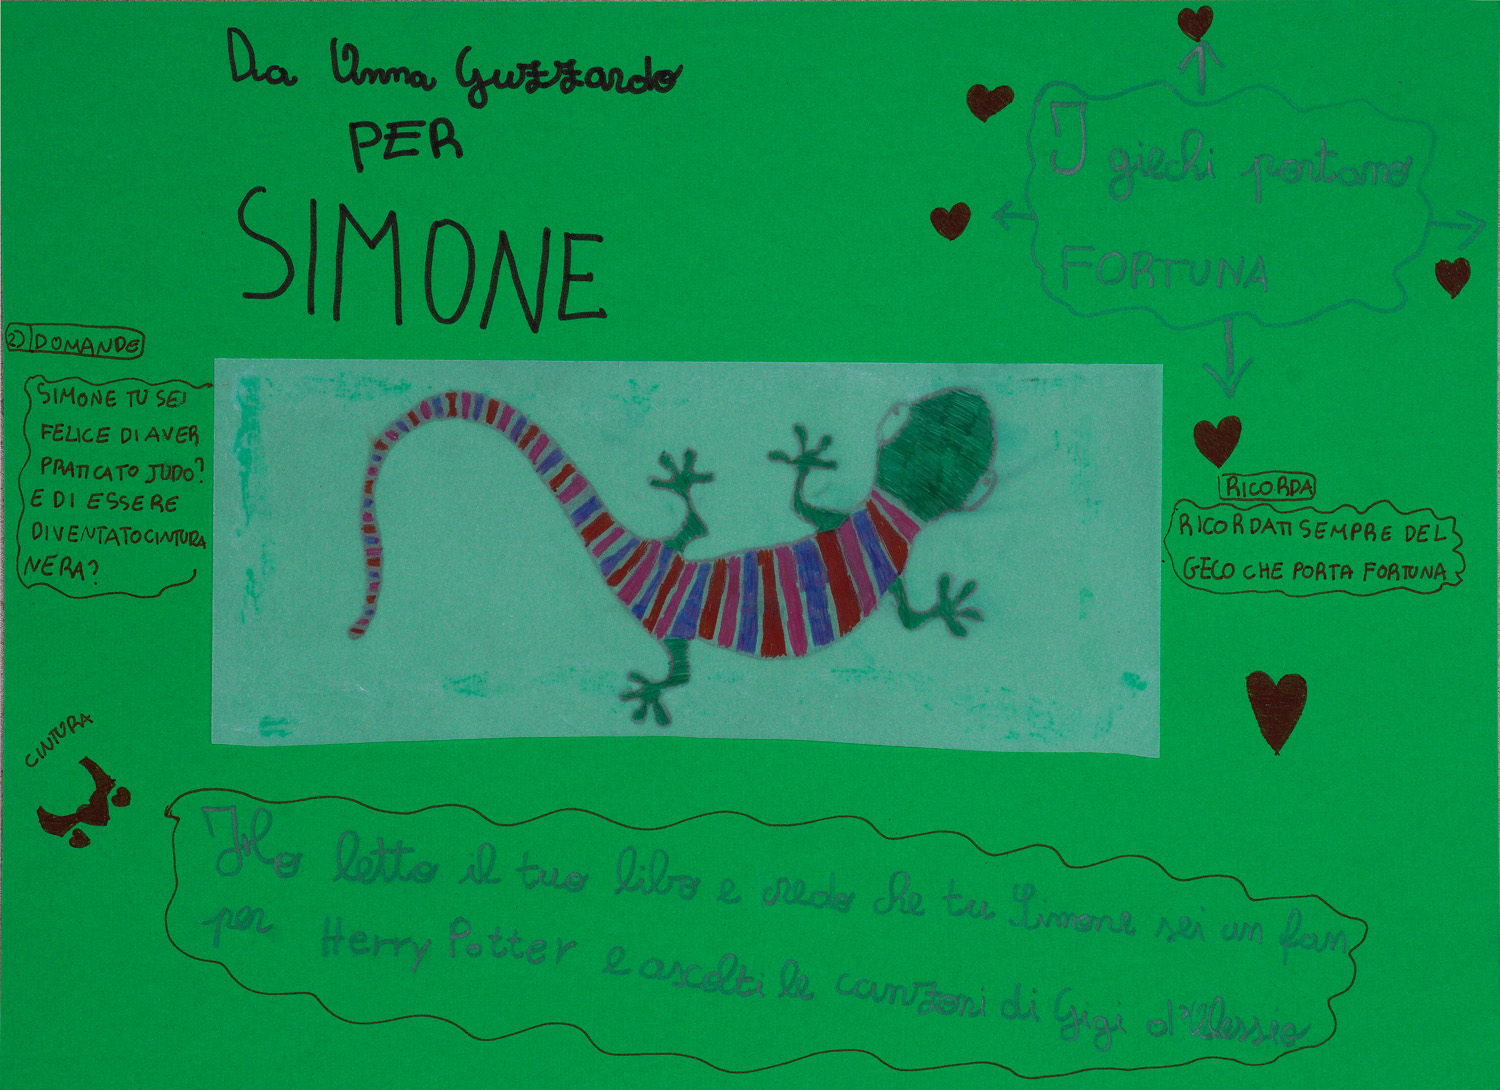 Da Anna Guzzardo
PER
SIMONE
I giechi portano
FORTUNA
2) DOMANDE
SIMONE TU SEI
FELICE DI AVER
PRATICATO JUDO?
E DI ESSERE
DIVENTATO CINTURA
NERA?
RICORDA
RICORDATI SEMPRE DEL
GECO CHE PORTA FORTUNA
CINTURA
Ho letto il tuo libo e credo che tu Simone sei un fan
per Herry Potter e ascolti le canzoni di Gigi d'Alessio